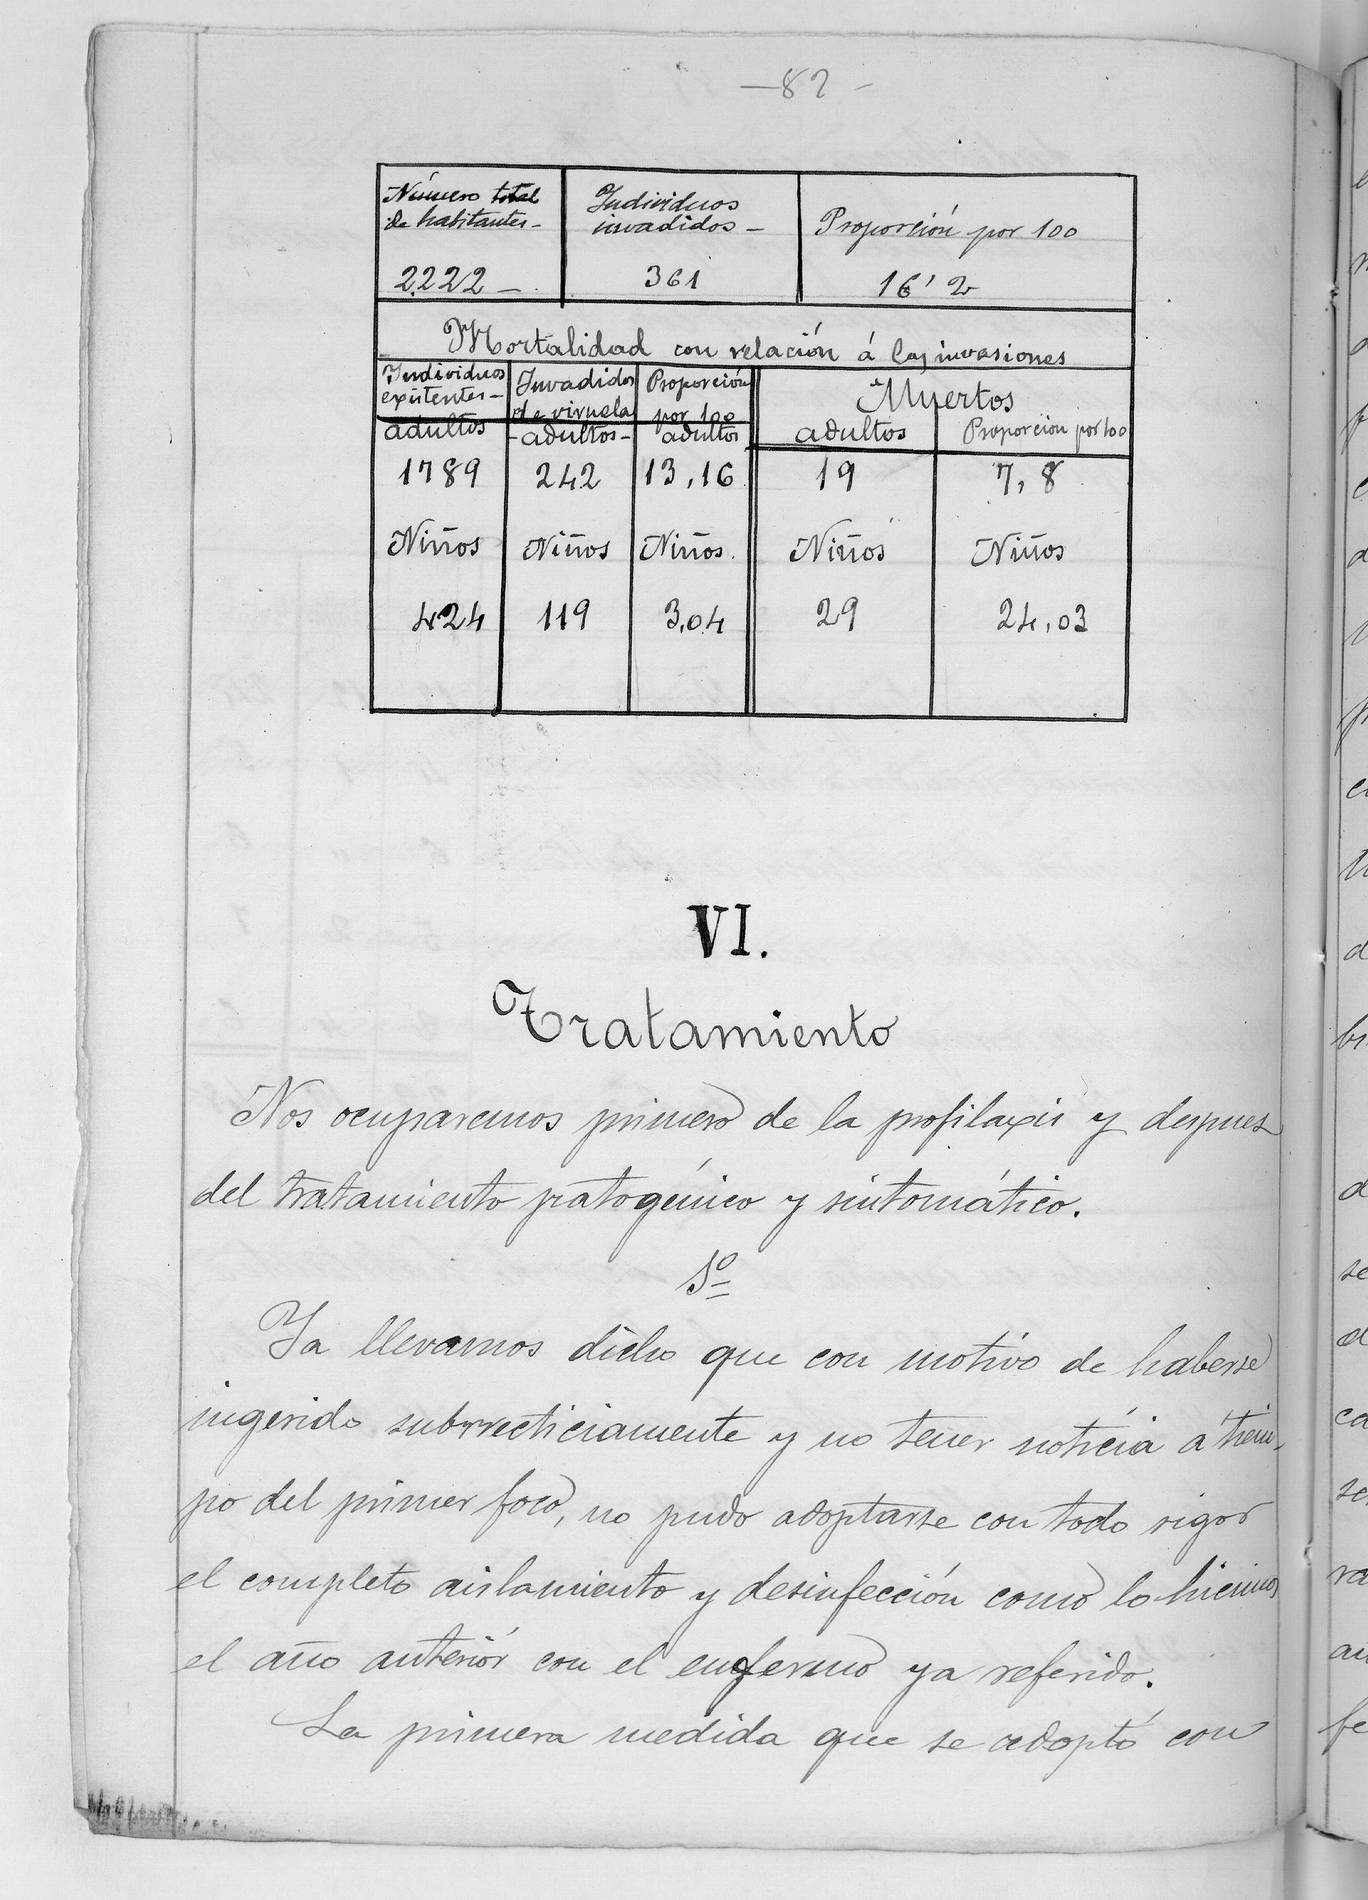 —82-
Número total de habitantes— Individuos invadidos— Proporción por 100
2222— 361 16'2
Mortalidad con relación á las invasiones
Individuos existentes— Invadidos de viruela Proporción por 100 Muertos
adultos -adultos- adultos adultos Proporcion por 100
1789 242 13,16 19 7,8
Niños Niños Niños. Niños Niños
424 119 3,04 29 24,03
VI.
Tratamiento
Nos ocuparemos primero de la profilaxis y despues
del tratamiento patogénico y sintomático.
1º
Ya llevamos dicho que con motivo de haberse
ingerido subrrecticiamente y no tener notícia á tiem-
po del primer foco, no pudo adoptarse con todo rigor
el completo aislamiento y desinfección como lo hicimos
el año anteriór con el enfermo ya referido.
La primera medida que se adoptó con